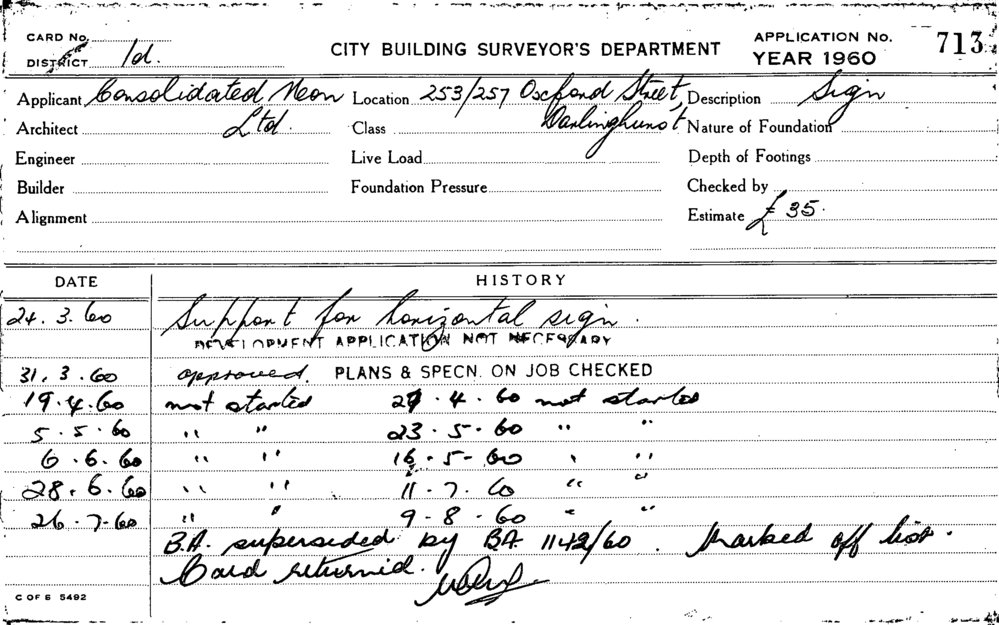 CARD No.
DISTRICT 1d.
CITY BUILDING SURVEYOR'S DEPARTMENT
APPLICATION No. 713
YEAR 1960
Applicant Consolidated Neon Location 253/257 Oxford Street, Description Sign
Architect Ltd. Class Darlinghurst Nature of Foundation
Engineer Live Load Depth of Footings
Builder Foundation Pressure Checked by
Alignment Estimate £ 35.
DATE HISTORY
24.3.60 Support for horizontal sign.
DEVELOPMENT APPLICATION NOT NECESSARY
31.3.60 approved. PLANS & SPECN. ON JOB CHECKED
19.4.60 not started 29.4.60 not started
5.5.60 " " 23.5.60 " "
6.6.60 " " 16.5.60 " "
28.6.60 " " 11.7.60 " "
26.7.60 " " 9.8.60 " "
B.A. superseded by BA 1142/60. Marked off list.
Card returnid.
C OF S 5492